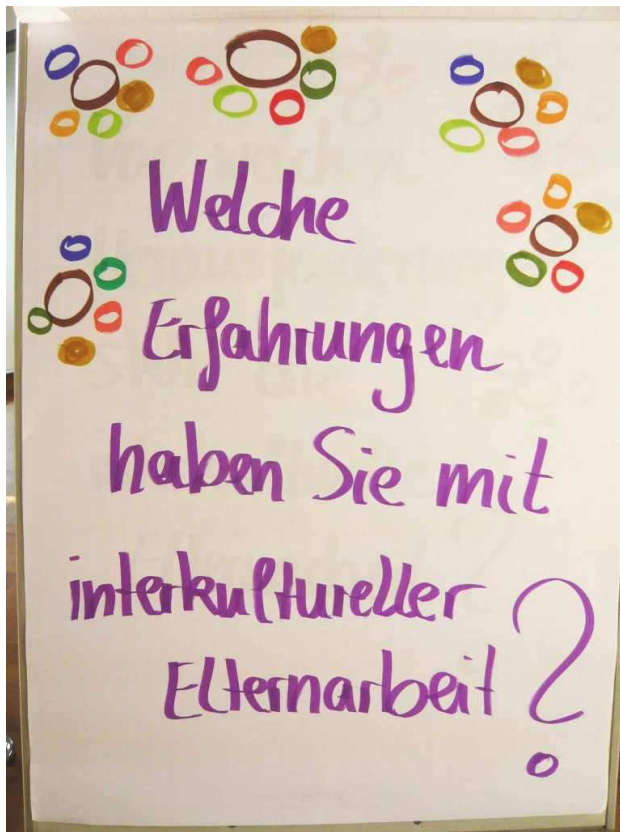 Welche
Erfahrungen
haben Sie mit
interkultureller
Elternarbeit ?